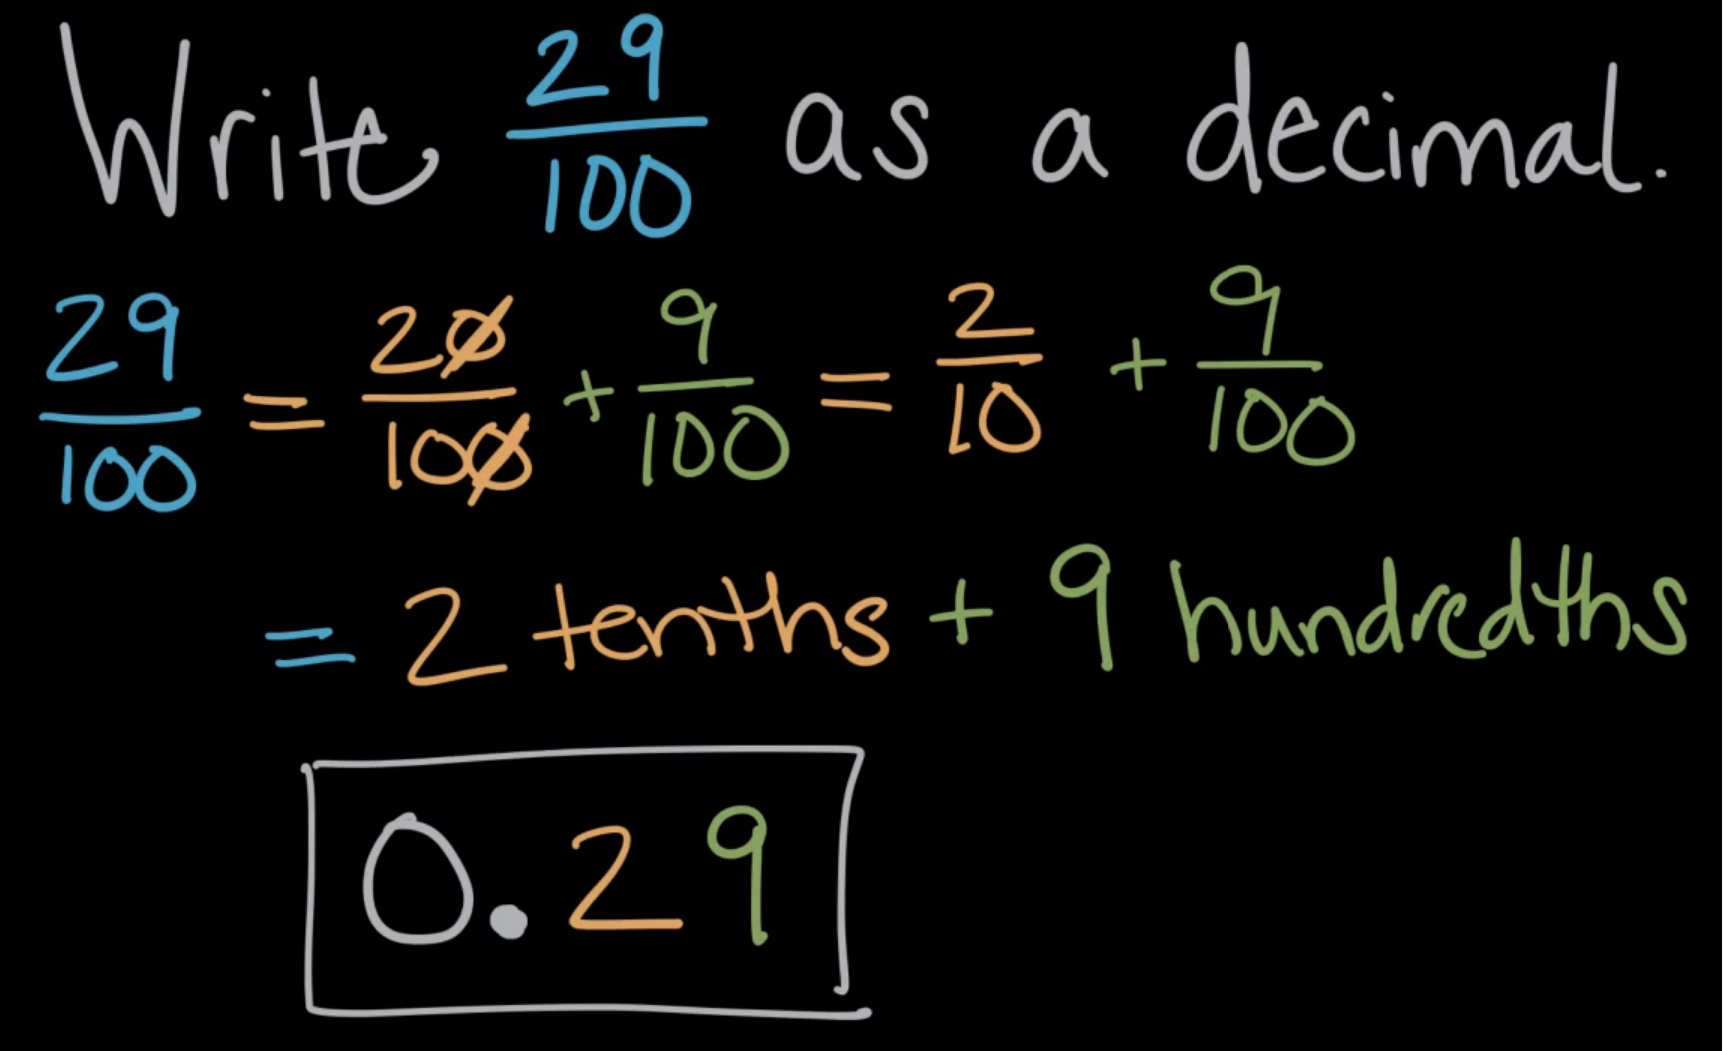 Write 29/100 as a decimal.
29/100 = 20/100 + 9/100 = 2/10 + 9/100
= 2 tenths + 9 hundredths
0.29